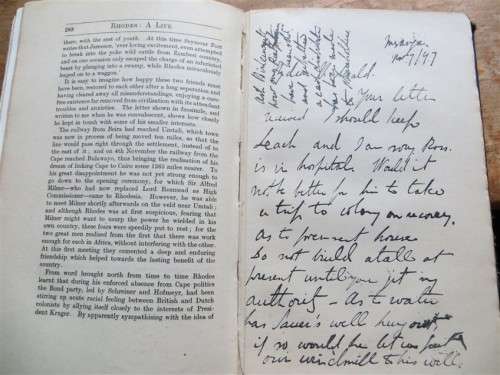 288 RHODES: A LIFE
there, with the zest of youth. At this time Seymour Fort
writes that Jameson, 'ever loving excitement, even attempted
to break in the yoke wild cattle from Zambesi country,
and on one occasion only escaped the charge of an infuriated
beast by plunging into a swamp, while Rhodes miraculously
leaped on to a waggon.
It is easy to imagine how happy these two friends must
have been, restored to each other after a long separation and
having cleared away all misunderstandings, enjoying a care-
free existence far removed from civilisation with its attendant
troubles and anxieties. The letter shown in facsimile, and
written to me when he was convalescent, shows how closely
he kept in touch with some of his smaller interests.
The railway from Beira had reached Umtali, which town
was now in process of being moved ten miles, so that the
line would pass right through the settlement, instead of to
the east of it; and on 4th November the railway from the
Cape reached Bulawayo, thus bringing the realisation of the
dream of linking Cape to Cairo some 1360 miles nearer. To
his great disappointment he was not yet strong enough to
go down to the opening ceremony, for which Sir Alfred
Milner—who had now replaced Lord Rosmead as High
Commissioner—came to Rhodesia. However, he was able
to meet Milner shortly afterwards on the veld near Umtali;
and although Rhodes was at first suspicious, fearing that
Milner might want to usurp the power he wielded in his
own country, these fears were speedily put to rest; for the
two great men realised from the first that there was work
enough for each in Africa, without interfering with the other.
At this first meeting they cemented a deep and enduring
friendship which helped towards the lasting benefit of the
country.
From word brought north from time to time Rhodes
learnt that during his enforced absence from Cape politics
the Bond party, led by Schreiner and Hofmeyr, had been
stirring up acute racial feeling between British and Dutch
colonists by allying itself closely to the interests of Presi-
dent Kruger. By apparently sympathising with the idea of
Nov 7/97
Your letter
received I should keep
Leach and I am sorry Ross.
is in hospital. Would it
not be better for him to take
a trip to colony on recovery.
As to permanent house
do not build at all at
present until you get my
authority - As to water
has Sauer's well
if so would he let us put
our windmill to his well.